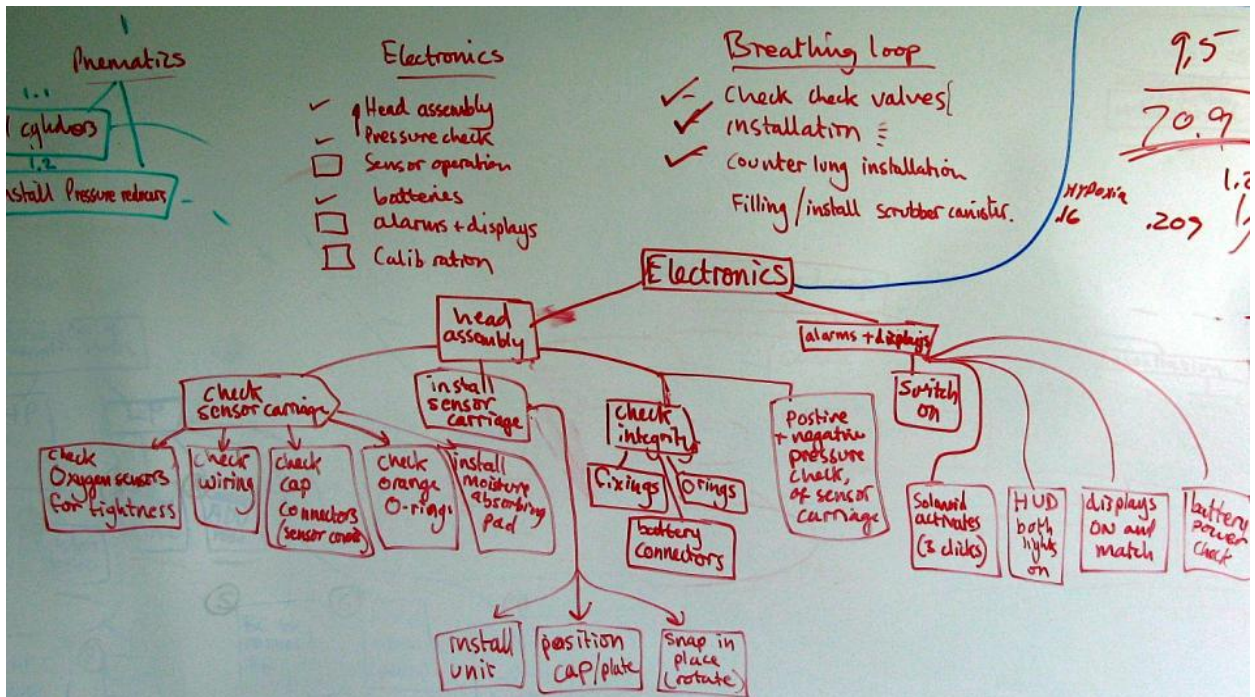 1
Pnematics
1.1
cylinders
1.2
nstall Pressure reducers
Electronics
Head assembly
Pressure check
Sensor operation
batteries
alarms + displays
Calibration
Breathing loop
check check valves
installation
counter lung installation
Filling / install scrubber canister.
9,5
20.9
HYPOXIA
.16
.209
1.2
Electronics
head
assembly
alarms + displays
check
sensor carriage
install
sensor
carriage
check
integrity
fixings
O rings
battery
connectors
Postive
+ negative
pressure
check,
of sensor
carriage
Switch
on
check
Oxygen sensors
for tightness
check
wiring
check
cap
connectors
check
orange
O-rings
install
moisture
absorbing
pad
Solanoid
activates
(3 clicks)
HUD
both
lights
on
displays
ON and
match
battery
power
check
install
unit
position
cap/plate
snap in
place
(rotate)